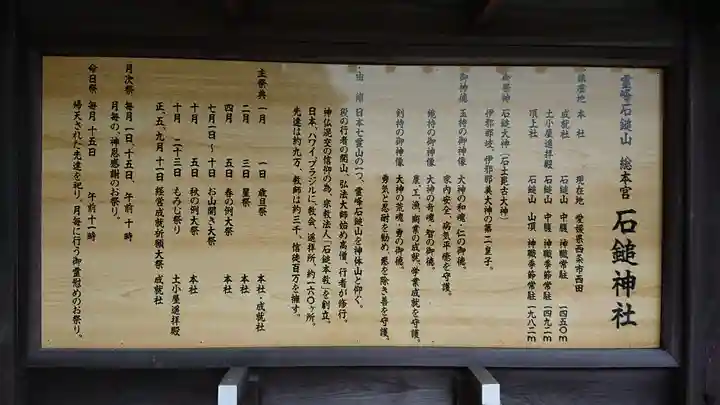 霊峰石鎚山 総本宮 石鎚神社
鎮座地 本社 現在地 愛媛県西条市西田
成就社 石鎚山 中腹 神職常駐 一四五〇m
土小屋遥拝殿 石鎚山 中腹 神職季節常駐 一四九二m
頂上社 石鎚山 山頂 神職季節常駐 一九八二m
御祭神 石鎚大神(石土毘古大神)
伊邪那岐、伊邪那美大神の第二皇子。
御神徳 玉持の御神像 大神の和魂・仁の御徳。
家内安全、病気平癒を守護。
鏡持の御神像 大神の奇魂・智の御徳。
農、工、漁、商業の成就、学業成就を守護。
剣持の御神像 大神の荒魂・勇の御徳。
勇気と忍耐を勧め、悪を除き善を守護。
由緒 日本七霊山の一つ、霊峰石鎚山を神体山と仰ぐ。
役の行者の開山、弘法大師始め高僧、行者が修行。
神仏混交の信仰の為、宗教法人「石鎚本教」を創立。
日本、ハワイ、ブラジルに、教会、遥拝所、約一六〇ヶ所。
先達は約九万、教師は約三千、信徒百万を擁す。
主祭典 一月 一日 歳旦祭 本社・成就社
二月 三日 星祭 本社
四月 五日 春の例大祭 本社
七月一日〜十日 お山開き大祭
十月 五日 秋の例大祭 本社
十月 二十三日 もみじ祭り 土小屋遥拝殿
正、五、九月 十一日 経営成就祈願大祭 成就社
月次祭 毎月 一日、十五日 午前 十時
月毎の、神恩感謝のお祭り。
命日祭 毎月 十五日 午前 十一時
帰天された先達を祀り、月毎に行う御霊慰めのお祭り。